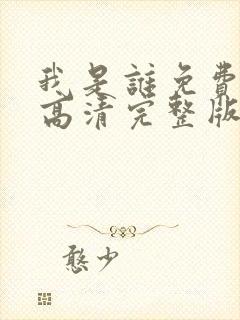 我是誰免費
高清完整版
憨少